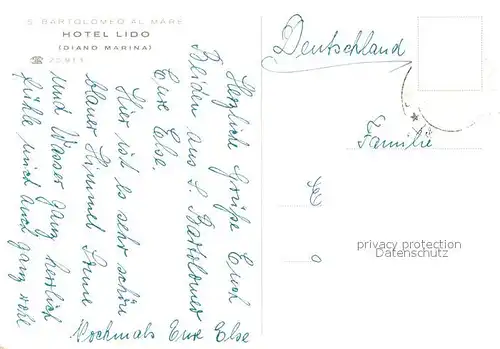 S. BARTOLOMEO AL MARE
HOTEL LIDO
(DIANO MARINA)
☎ 25.911
Herzliche Grüße Euch
Beiden aus S. Bartolomeo
Eure Else.
Hier ist es sehr schön
blauer Himmel Sonne
und Wasser ganz herrlich
fühle mich auch ganz wohl
Nochmals Eure Else
Deutschland
Familie
privacy protection
Datenschutz